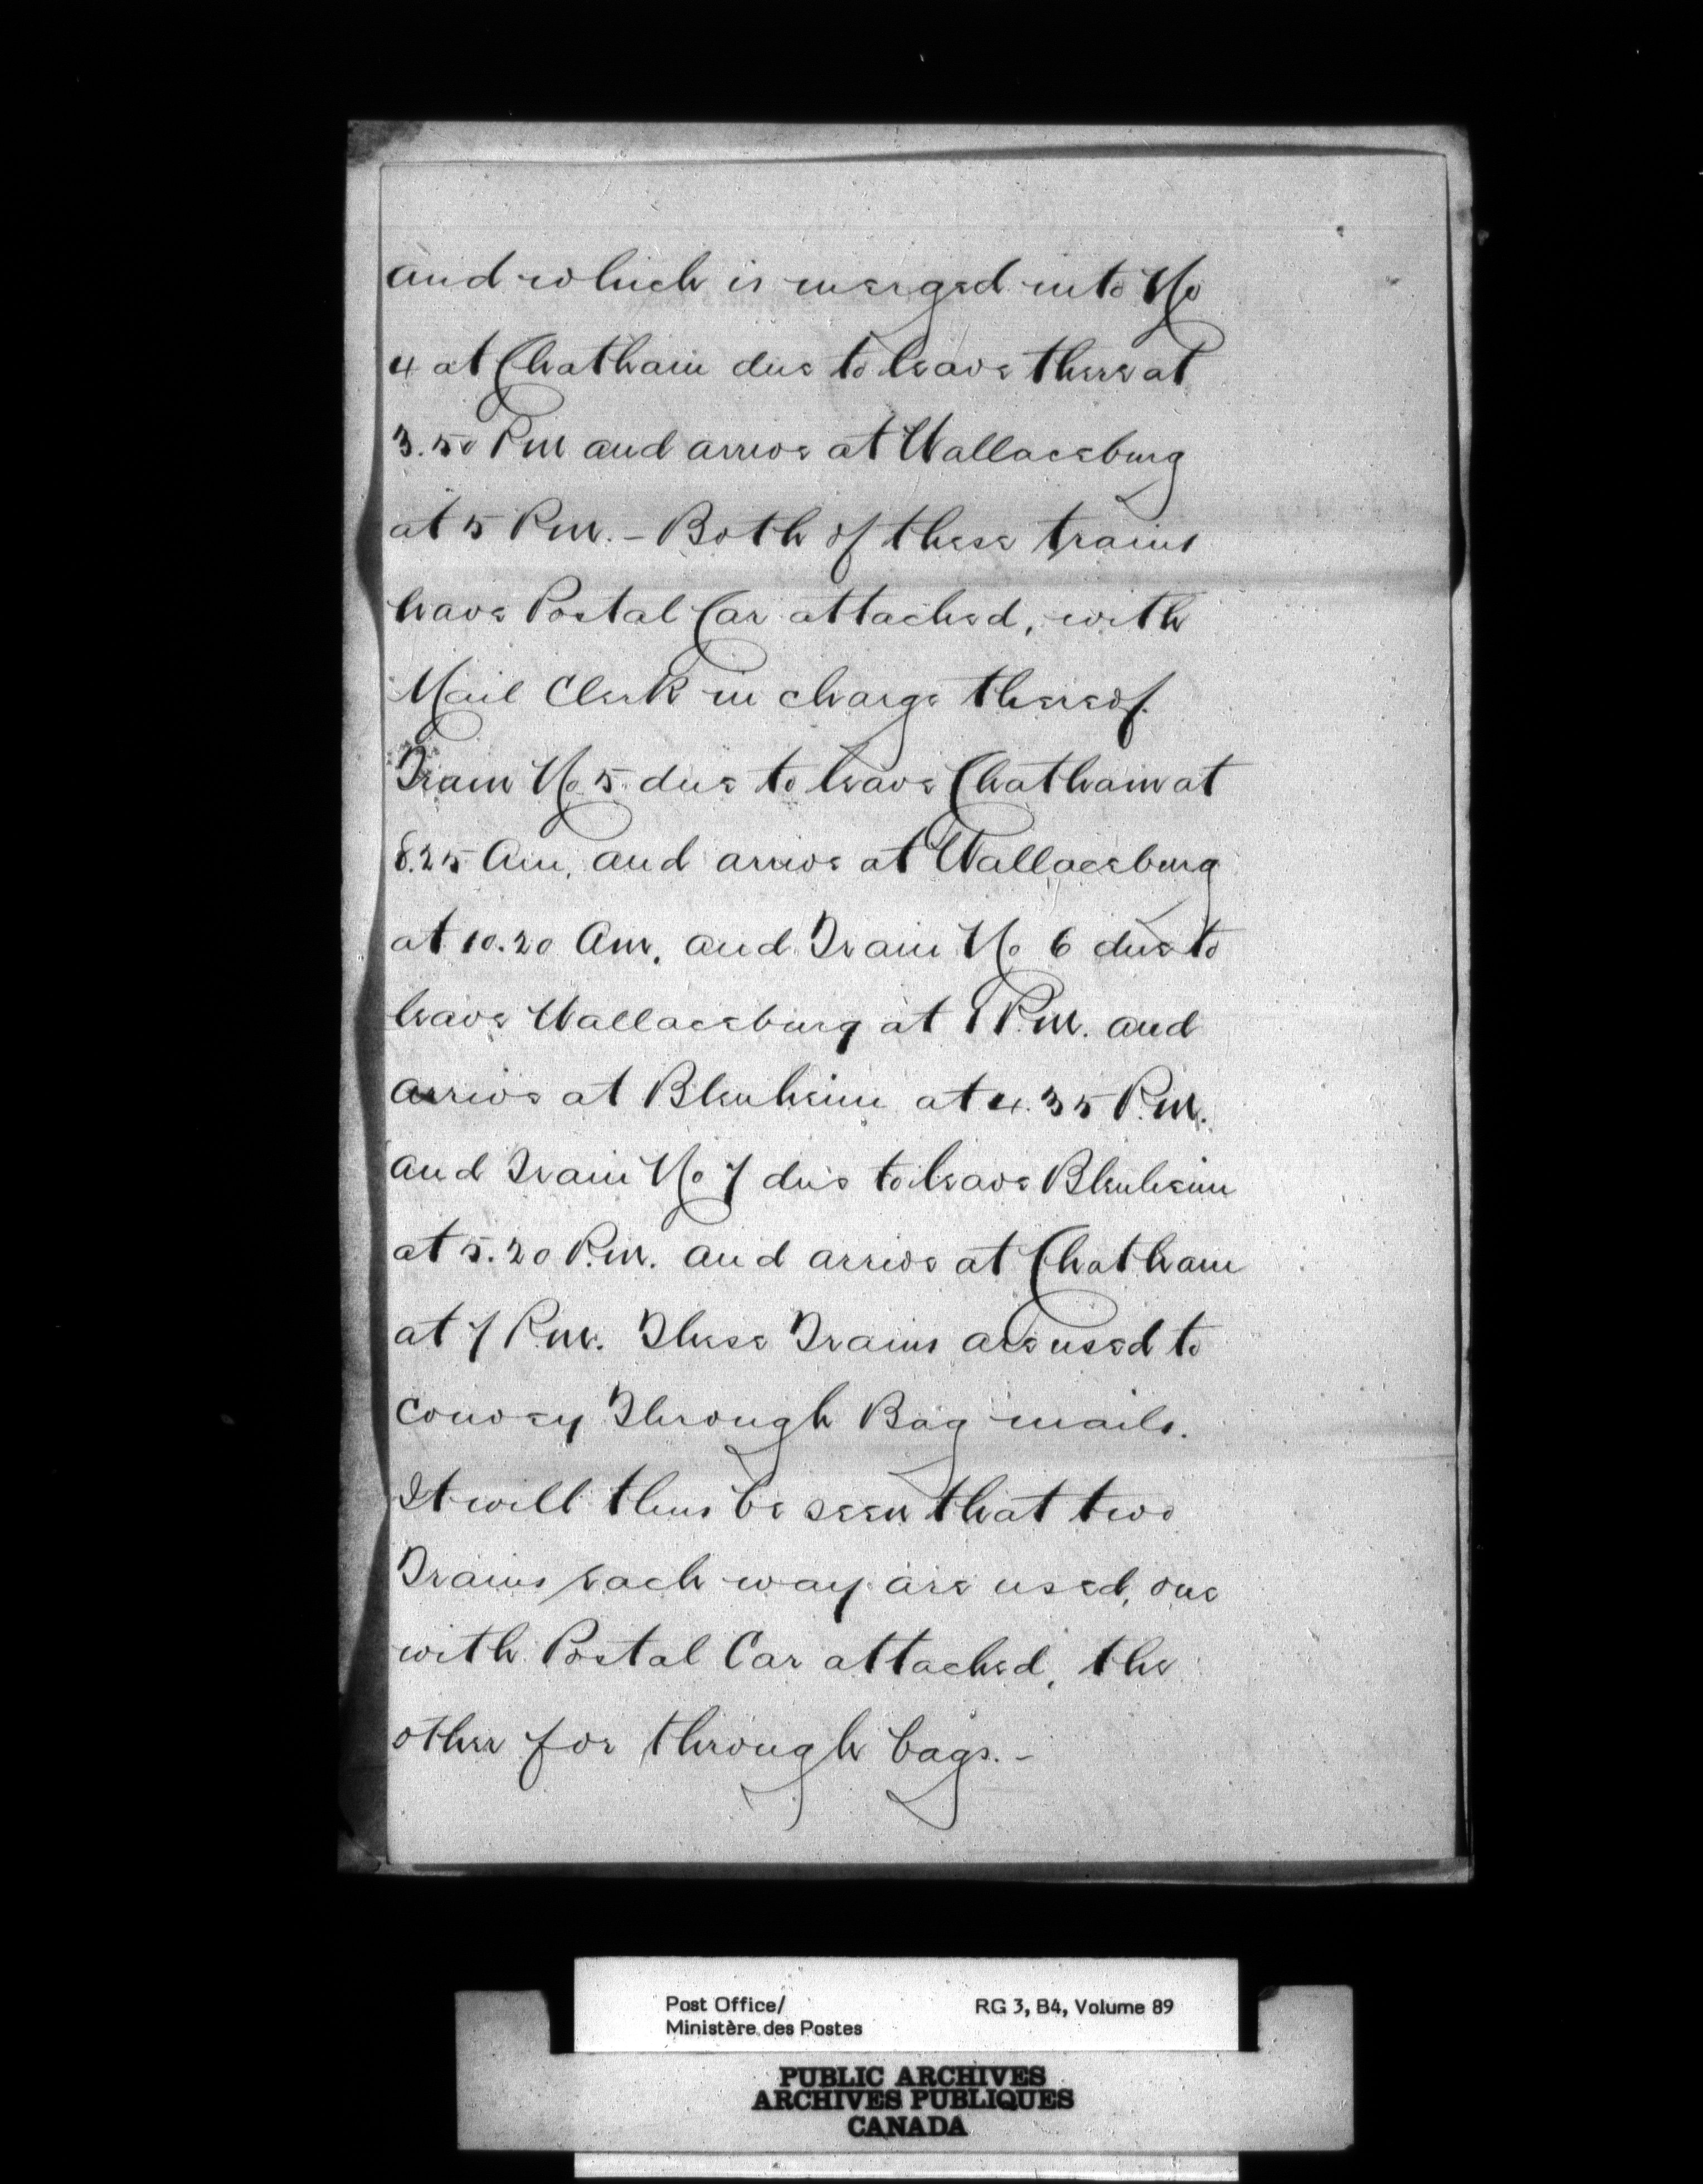 and which is merged into No
4 at Chatham due to leave there at
3.50 Pm and arrive at Wallaceburg
at 5 Pm. - Both of these trains
have Postal Car attached, with
Mail Clerk in charge thereof.
Train No 5 due to leave Chatham at
8.25 Am, and arrive at Wallaceburg
at 10.20 Am, and Train No 6 due to
leave Wallaceburg at 1 P.m. and
arrive at Blenheim at 4.35 P.m.
and Train No 7 due to leave Blenheim
at 5.20 P.m. and arrive at Chatham
at 7 P.m. These Trains are used to
convey Through Bag mails.
It will thus be seen that two
Trains each way are used, one
with Postal Car attached, the
other for through bags. -
Post Office/
Ministère des Postes
RG 3, B4, Volume 89
PUBLIC ARCHIVES
ARCHIVES PUBLIQUES
CANADA